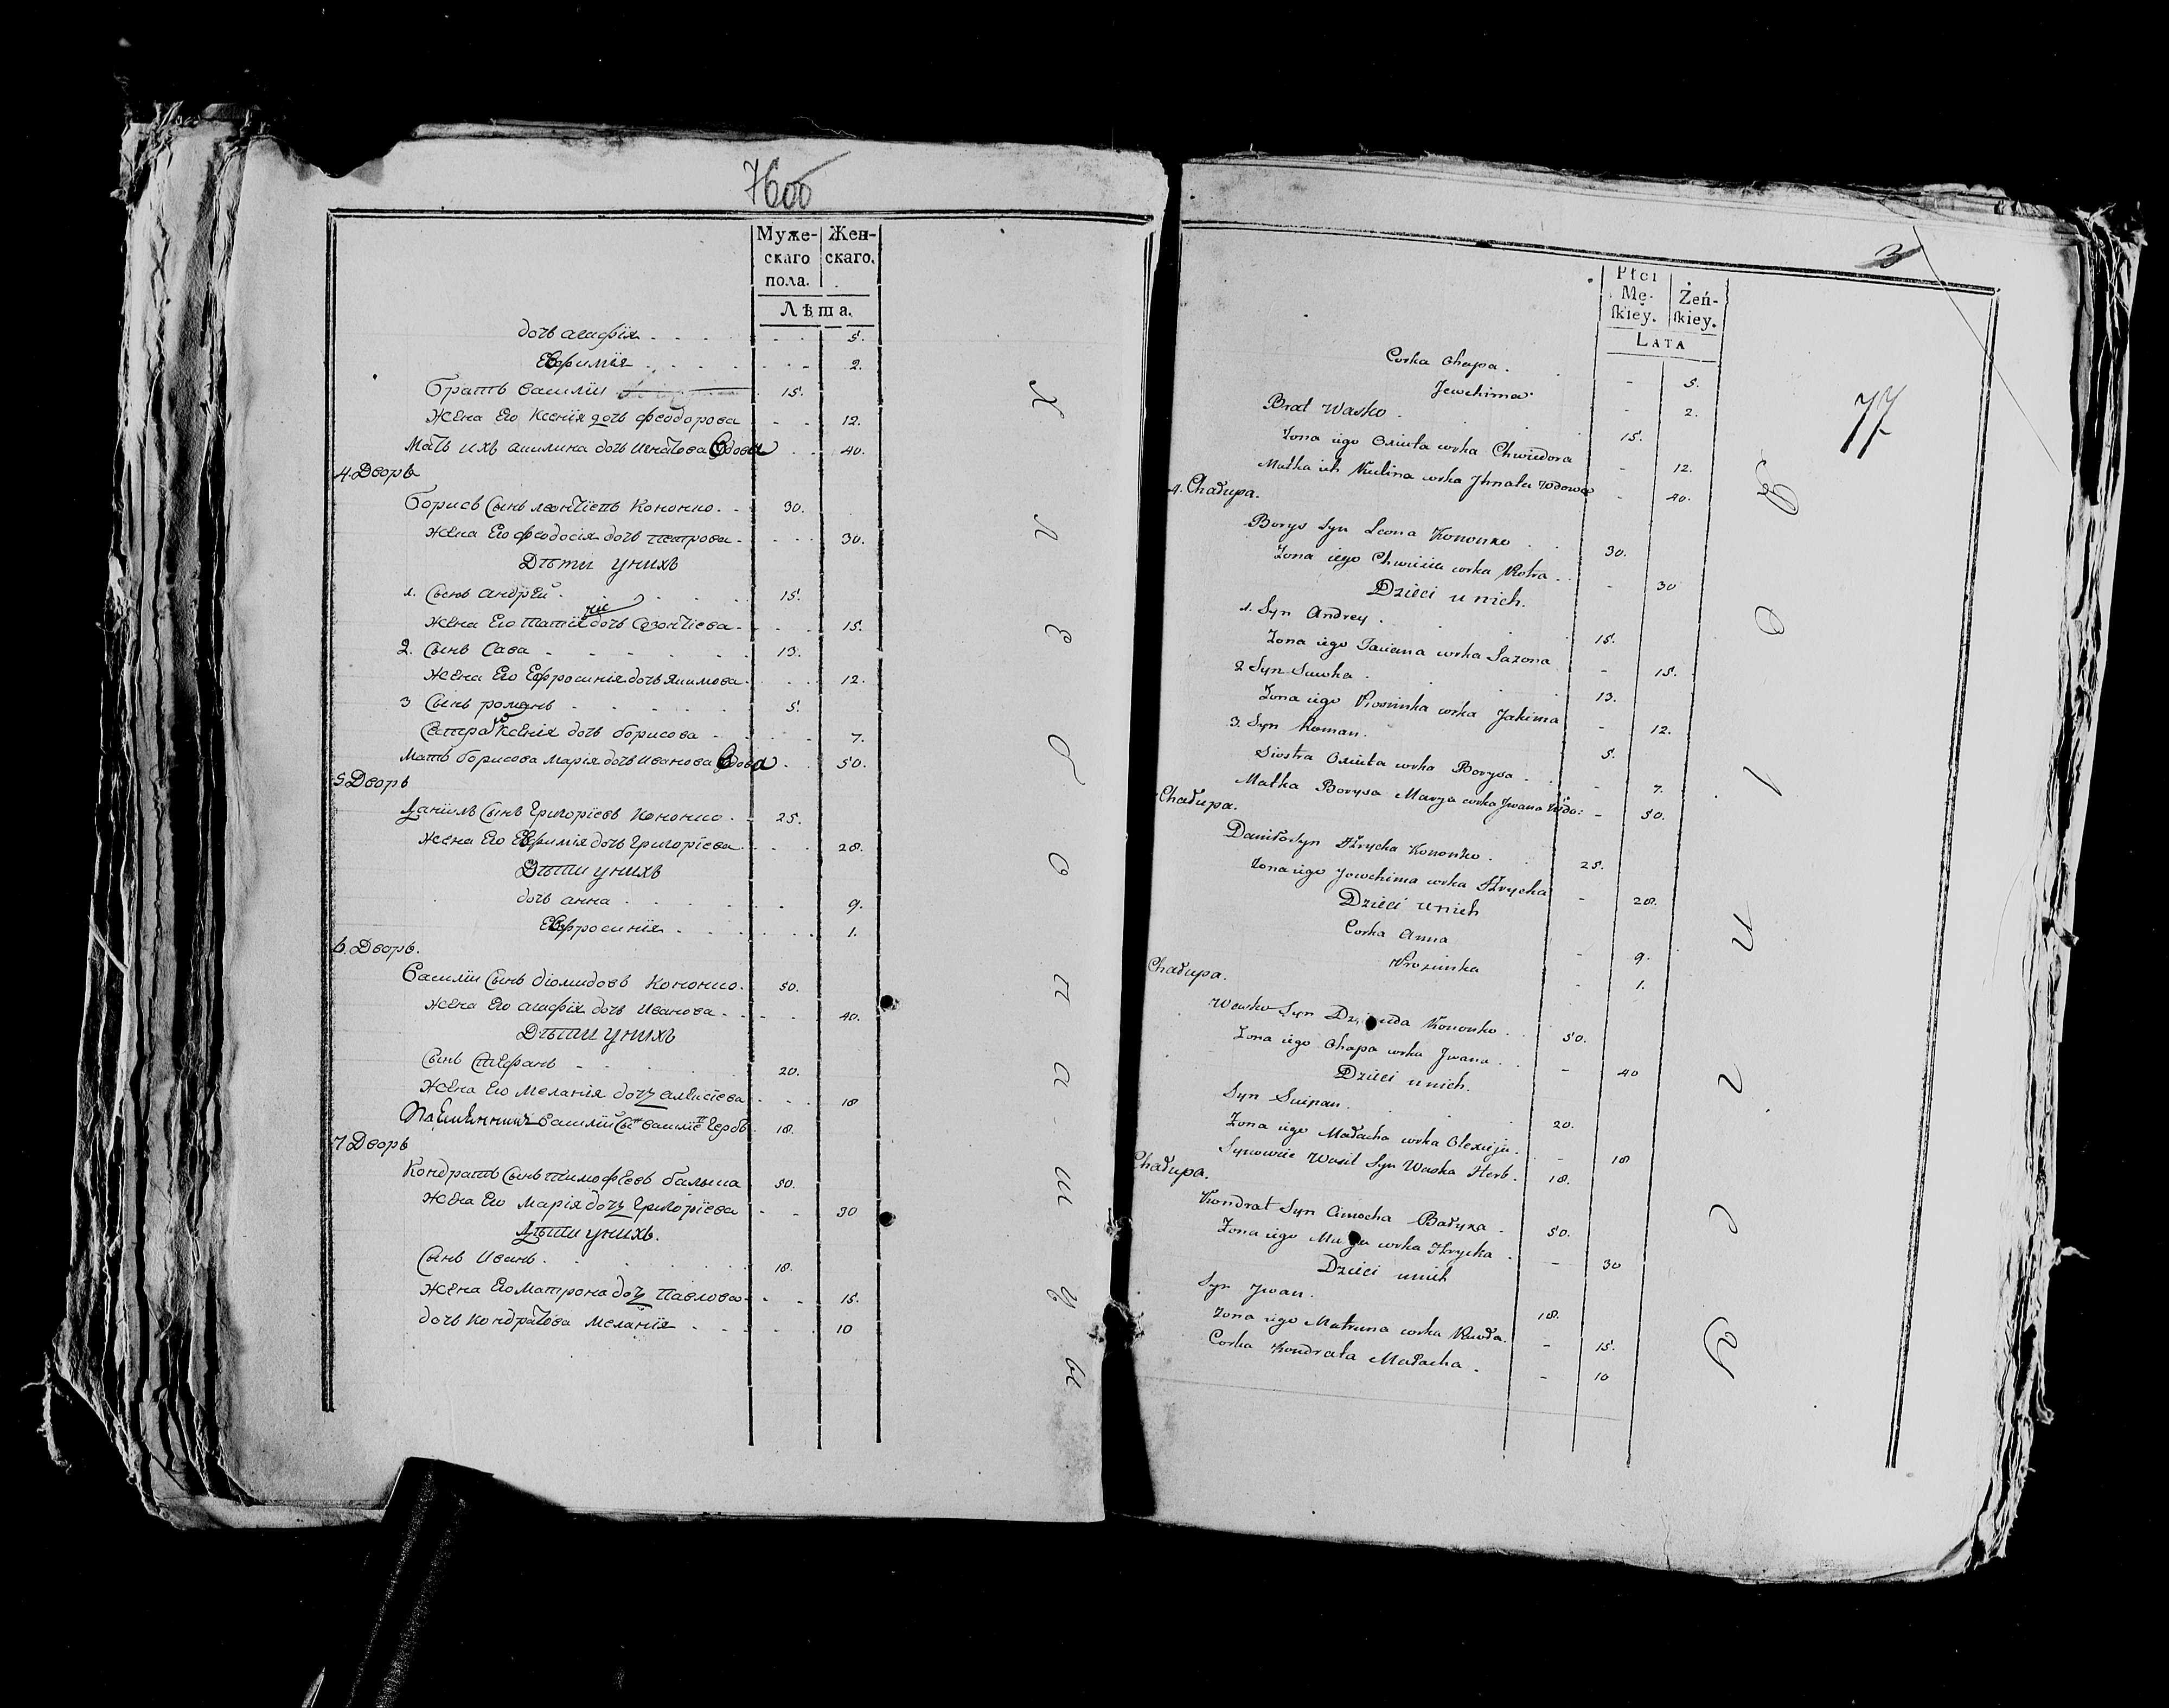 76об
Муже-
скаго
пола.
Жен-
скаго.
Лѣта.
дочь агафiя 5.
Евфимiя 2.
братъ василiи 15.
жена Его Ксенiя дочь феодорова 12.
Мать ихъ акилина дочь игнатова вдова 40.
4 Дворъ
борисъ Сынъ леонтiевъ Кононко 30.
жена Его феодосiя дочь петрова 30.
Дѣти унихъ
1. Сынъ андрей 15.
жена Его татiя дочь Созонтiева 15.
2. Сынъ Сава 13.
жена Его Ефросинiя дочь якимова 12.
3 Сынъ романъ 5.
Сестра Ксенiя дочь борисова 7.
Мать борисова марiя дочь иванова вдова 50.
5 Дворъ
Данiилъ Сынъ григорiевъ Кононко 25.
жена Его Евфимiя дочь григорiева 28.
Дѣти унихъ
дочь анна 9.
Евфросинiя 1.
6. Дворъ.
василiи Сынъ дiомидовъ Кононко 50.
жена Его агафiя дочь иванова 40.
Дѣти унихъ
Сынъ стефанъ 20.
жена Его меланiя дочь алексiева 18
племянникъ василiи Сынъ василiевъ гербъ 18.
7 Дворъ
Кондратъ Сынъ тимофеевъ балыка 50.
жена Его марiя дочь григорiева 30
Дѣти унихъ.
Сынъ иванъ 18.
жена Его матрона дочь павлова 15.
дочь Кондратова меланiя 10
Х л е б о п а ш ц ы
3
77
Płci
Mę-
ſkiey.
Żeń-
ſkiey.
LATA
Corka Ohapa - 5.
Jewchima - 2.
Brat Wasko 15.
Zona iego Oxiuta corka Chwiedora - 12.
Matka ich Kulina corka Ihnata wdowa - 40.
4. Chałupa.
Borys Syn Leona Kononko 30.
Zona iego Chwiesia corka Piotra - 30
Dzieci u nich.
1. Syn Andrey 15.
Zona iego Taciana corka Sazona - 15.
2 Syn Sawka 13.
Zona iego Prosinka corka Jakima - 12.
3. Syn Roman. 5.
Siostra Oxiuta corka Borysa - 7.
Matka Borysa Marya corka Jwana wdo: - 50.
Chałupa.
Daniło Syn Hrycka Kononko 25.
Zona iego Jewchima corka Hrycka - 28.
Dzieci u nich
Corka Anna - 9.
Prosinka - 1.
Chałupa.
Wasko Syn Kononko 50.
Zona iego Ohapa corka Jwana - 40
Dzieci u nich.
Syn Sciepan 20.
Zona iego Małacha corka Olexieja - 18
Synowiec Wasil Syn Waska Herb. 18.
Chałupa.
Kondrat Syn Cimocha Bałyka 50.
Zona iego Marya corka Hrycka - 30
Dzieci u nich
Syn Jwan. 18.
Zona iego Matruna corka Pawła - 15.
Corka Kondrata Małacha - 10
R o l n i c y